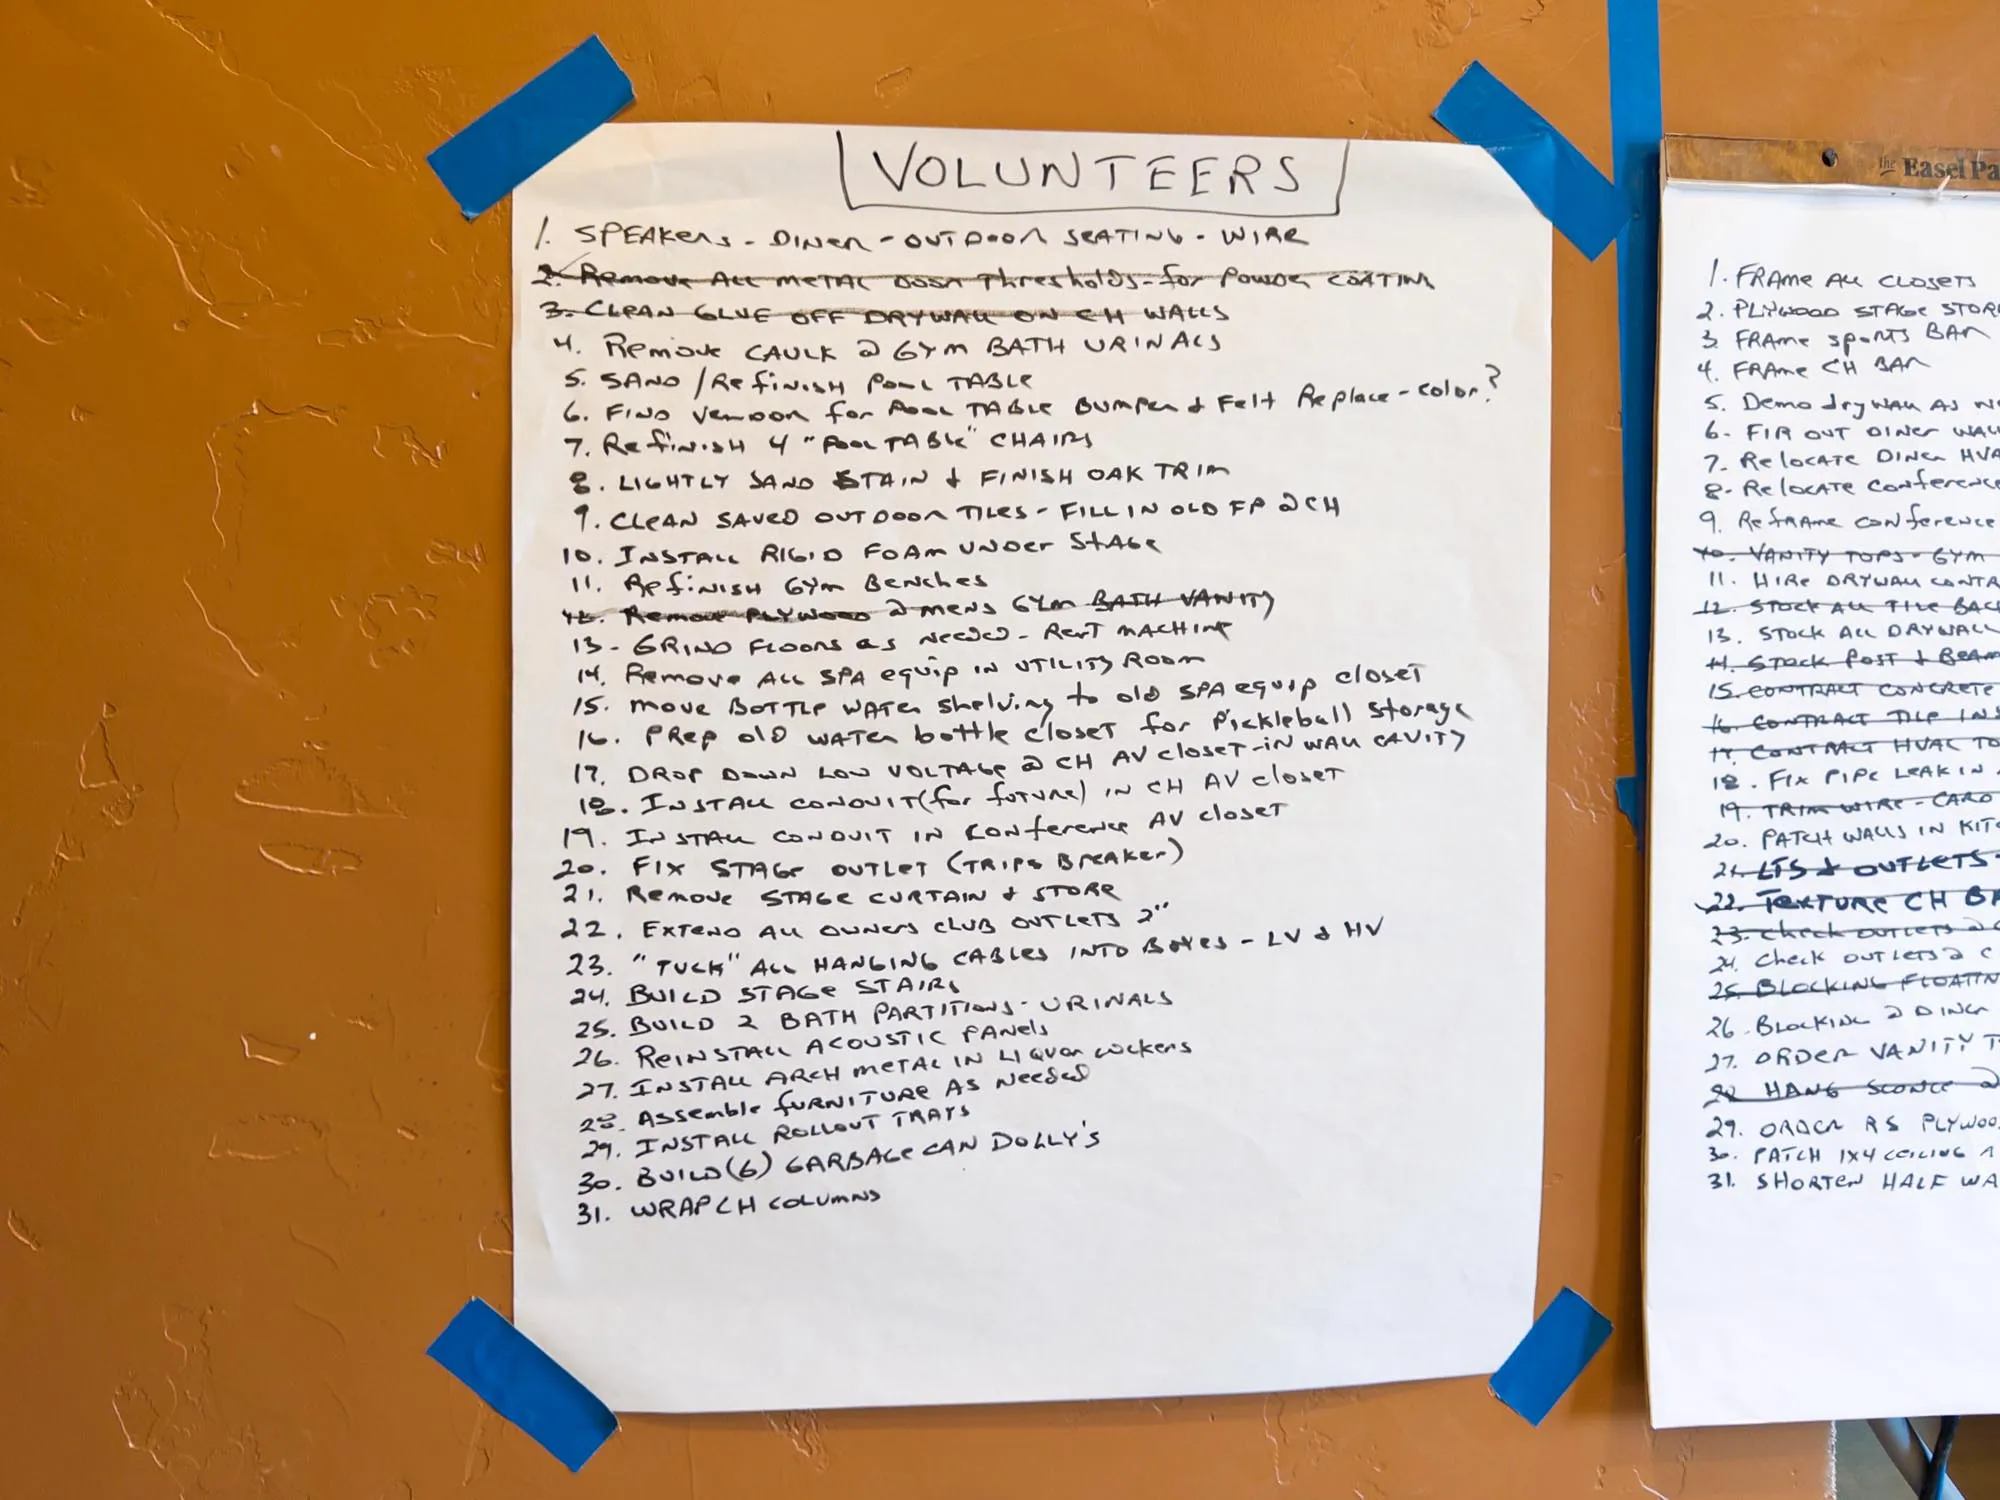 VOLUNTEERS
1. SPEAKERS - DINER - OUTDOOR SEATING - WIRE
2. Remove ALL METAL DOOR Thresholds - for Powder COATING
3. CLEAN GLUE OFF DRYWALL ON CH WALLS
4. Remove CAULK @ GYM BATH URINALS
5. SAND / Refinish POOL TABLE
6. FIND Vendor for POOL TABLE BUMPER & Felt Replace - Color?
7. Refinish 4 "POOL TABLE" CHAIRS
8. LIGHTLY SAND STAIN & FINISH OAK TRIM
9. CLEAN SAVED OUTDOOR TILES - FILL IN OLD FP @ CH
10. INSTALL RIGID FOAM UNDER STAGE
11. Refinish GYM Benches
12. Remove PLYWOOD @ MENS GYM BATH VANITY
13 - GRIND FLOORS as Needed - Rent MACHINE
14. Remove ALL SPA equip IN UTILITY ROOM
15. move BOTTLE WATER shelving to old SPA equip closet
16. PREP old WATER bottle closet for Pickleball Storage
17. DROP DOWN LOW VOLTAGE @ CH AV closet - IN WALL CAVITY
18. INSTALL CONDUIT (for future) IN CH AV closet
19. INSTALL CONDUIT IN Conference AV closet
20. FIX STAGE OUTLET (TRIPS BREAKER)
21. Remove STAGE CURTAIN & STORE
22. EXTEND ALL OWNERS CLUB OUTLETS 2"
23. "TUCK" ALL HANGING CABLES INTO BOXES - LV & HV
24. BUILD STAGE STAIRS
25. BUILD 2 BATH PARTITIONS - URINALS
26. REINSTALL ACOUSTIC PANELS
27. INSTALL ARCH METAL IN LIQUOR LOCKERS
28. Assemble FURNITURE AS Needed
29. INSTALL ROLLOUT TRAYS
30. BUILD (6) GARBAGE CAN DOLLY'S
31. WRAP CH COLUMNS
the Easel Pa
1. FRAME ALL CLOSETS
2. PLYWOOD STAGE STOR
3. FRAME SPORTS BAR
4. FRAME CH BAR
5. Demo drywall AS N
6 - FIR OUT DINER WALL
7. Relocate DINER HVA
8 - Relocate Conference
9. Reframe Conference
10. VANITY TOPS - GYM
11. HIRE DRYWALL CONTRA
12. STOCK ALL TILE BAC
13. STOCK ALL DRYWALL
14. STOCK POST & BEAM
15. CONTRACT CONCRETE
16. CONTRACT TILE INS
17. CONTRACT HVAC TO
18. FIX PIPE LEAK IN
19. TRIM WIRE - CARD
20. PATCH WALLS IN KITC
21. LTS & OUTLETS -
22. TEXTURE CH BA
23. Check OUTLETS @
24. Check OUTLETS @ C
25. BLOCKING FLOATIN
26. BLOCKING @ DINER
27. ORDER VANITY T
28. HANG SCONCE @
29. ORDER RS PLYWOO
30. PATCH 1X4 CEILING
31. SHORTEN HALF WA